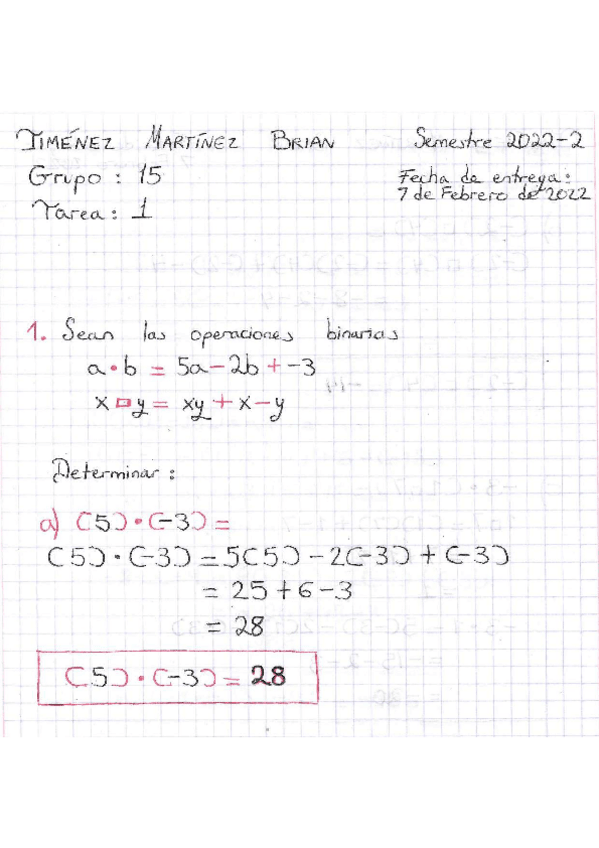 JIMÉNEZ MARTÍNEZ BRIAN
Semestre 2022-2
Grupo : 15
Fecha de entrega:
7 de Febrero de 2022
Tarea : 1
1. Sean las operaciones binarias
a • b = 5a - 2b + -3
x □ y = xy + x - y
Determinar :
a) (5) • (-3) =
(5) • (-3) = 5(5) - 2(-3) + (-3)
= 25 + 6 - 3
= 28
(5) • (-3) = 28